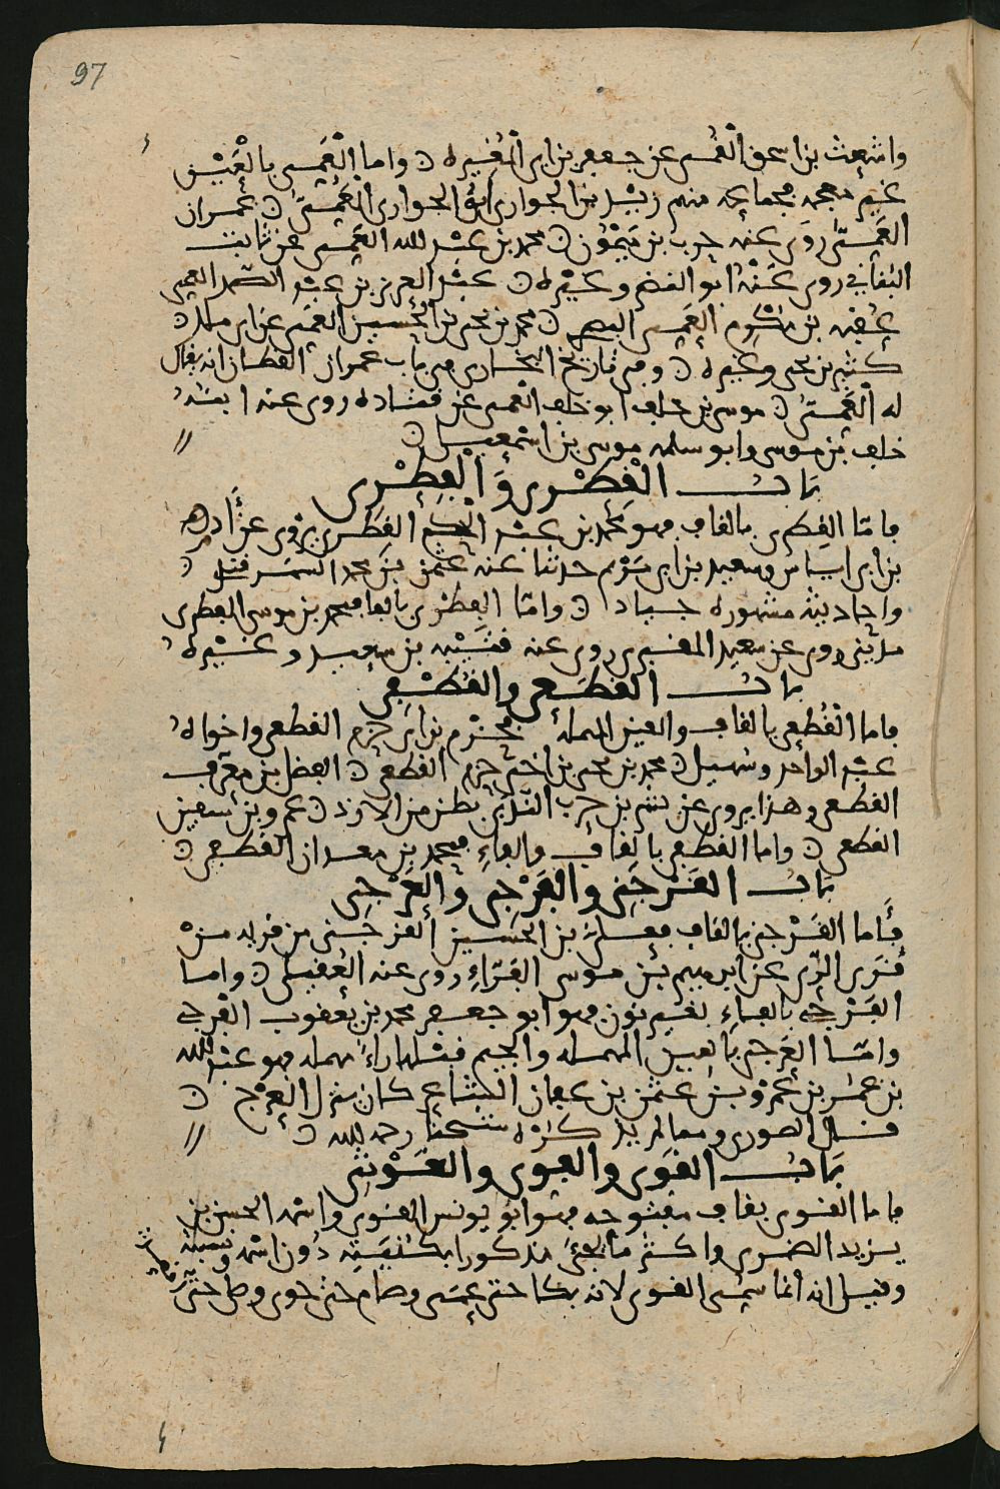 97
واشعث بن اسحق القمي عن جعفر بن ابي المغيرة ۞ واما العمي بالعين
غير معجمة فجماعة منهم زيد بن الحواري ابو الحواري العمي ۞ عمران
العمي روى عنه حرب بن ميمون ۞ محمد بن عبد الله العمي عن ثابت
البناني روى عنه ابو النضر وغيره ۞ عبد العزيز بن عبد الصمد العمي
عقبة بن مكرم العمي البصري ۞ محمد بن يحيى بن الحسين العمي عن ابي
كثير بن يحيى وغيره ۞ وفي تاريخ البخاري في باب عمران القطان انه يقال
له العمي ۞ موسى بن خلف ابو خلف العمي عن قتادة روى عنه ابنه
خلف بن موسى وابو سلمة موسى بن اسمعيل ۞
باب القطري والفطري
فاما القطري بالقاف فهو محمد بن عبد الحكم القطري يروي عن ادم
بن ابي اياس وسعيد بن ابي مريم حدثنا عنه عثمن بن محمد السمرقندي ۞
واحاديثه مشهورة جياد ۞ واما الفطري بالفا فمحمد بن موسى الفطري
مديني روى عن سعيد المقبري روى عنه قتيبة بن سعيد وغيره
باب القطعي والقطفي
فاما القطعي بالقاف والعين المهملة فحزم بن ابي حزم القطعي واخواه
عبد الواحد وسهيل ۞ محمد بن يحيى بن اخي حزم القطعي ۞ الفضل بن معروف
القطعي وهذا يروي عن بشر بن حرب الندبي بطن من الازد ۞ عمرو بن سفين
القطعي ۞ واما القطفي بالقاف والفاء فمحمد بن معدان القطفي ۞
باب القرجني والفرجي والعرجي
فاما القرجني بالقاف فعلي بن الحسين القرجني من قرية من
قرى الري عن ابرهيم بن موسى الفراء روى عنه العقيلي ۞ واما
الفرجي بالفاء بغير نون فهو ابو جعفر محمد بن يعقوب الفرجي
واما العرجي بالعين المهملة والجيم قبلها راء مهملة فهو عبد الله
بن عمر بن عمرو بن عثمن بن عفان الشاعر كان ينزل العرج ۞
قال الصوري ومما لم يذكره شيخنا رحمه الله ۞
باب القوي والفوي والعوني
فاما القوي بقاف مفتوحة فهو ابو يونس القوي واسمه الحسن بن
يزيد الضمري واكثر ما يجئ مذكورا بكنيته دون اسمه ونسبته
وقيل انه انما سمي القوي لانه بكا حتى عمي وصام حتى خوى وصلى حتى